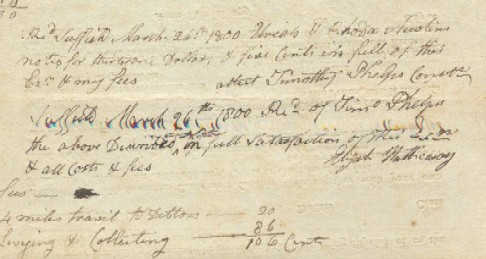 Rec'd Suffield March 26th 1800 Uriah & Rhoda Austins
notes for thirteen Dollars, & five Cents in full of this
Exn & my fees
attest Timothy Phelps Const
Suffield March 26th 1800 Recd of Timo Phelps
the above Described in full Satisfaction of this Exn
& all Costs & fees Elijah Hathaway
fees
4 miles travil to Debtors 20
Levying & Collecting 86
106 Cents